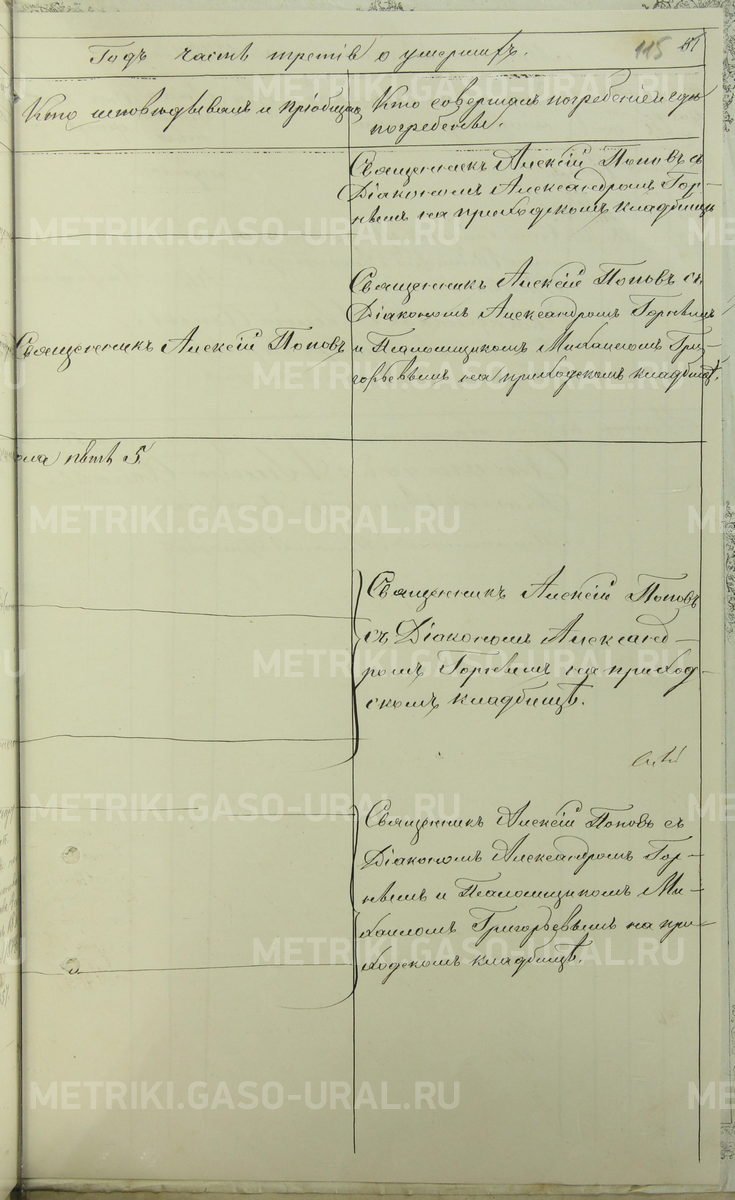 Годъ часть третія о умершихъ.
115
Кто исповѣдывалъ и пріобщалъ
Кто совершалъ погребеніе и гдѣ
погребены.
Священникъ Алексій Поповъ съ
Діакономъ Александромъ Гор-
нымъ на приходскомъ кладбищѣ
Священникъ Алексій Поповъ
Священникъ Алексій Поповъ съ
Діакономъ Александромъ
и Псаломщикомъ Михаиломъ Гри-
горьевымъ на приходскомъ кладбищѣ.
пять 5.
Священникъ Алексій Поповъ
съ Діакономъ Александ-
ромъ на приход-
скомъ кладбищѣ.
Священникъ Алексій Поповъ съ
Діакономъ Александромъ Гор-
и Псаломщикомъ Ми-
хаиломъ Григорьевымъ на при-
ходскомъ кладбищѣ.
METRIKI.GASO-URAL.RU